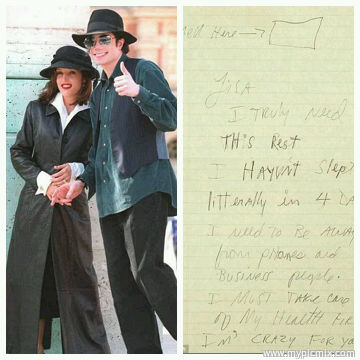 ell Here
LISA
I Truly Need
THis Rest
I Haven't Slept
litterally in 4 DA
I NEED TO BE AWAY
from phones and
Business people.
I MUST TAKE CARE
of My Health FIR
I'm CRAZY FOR YO
www.mypicmix.com